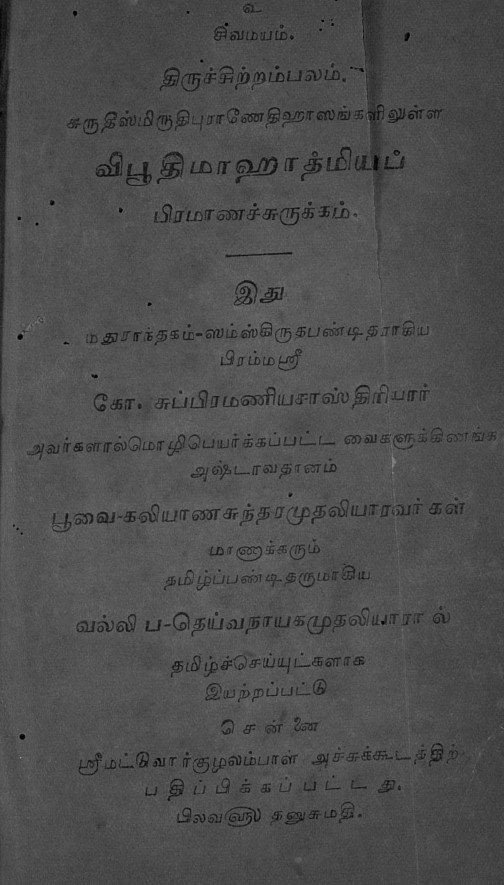 உ
சிவமயம்.
திருச்சிற்றம்பலம்.
சுருதிஸ்மிருதிபுராணேதிஹாஸங்களிலுள்ள
விபூதிமாஹாத்மியப்
பிரமாணச்சுருக்கம்.
இது
மதுராந்தகம்-ஸம்ஸ்கிருதபண்டிதராகிய
பிரம்மஸ்ரீ
கோ. சுப்பிரமணியசாஸ்திரியார்
அவர்களால்மொழிபெயர்க்கப்பட்ட வைகளுக்கிணங்க
அஷ்டாவதானம்
பூவை-கலியாணசுந்தரமுதலியாரவர்கள்
மாணாக்கரும்
தமிழ்ப்பண்டிதருமாகிய
வல்லி ப-தெய்வநாயகமுதலியாரால்
தமிழ்ச்செய்யுட்களாக
இயற்றப்பட்டு
சென்னை
ஸ்ரீமட்டுவார்குழலம்பாள் அச்சுக்கூடத்திற்
பதிப்பிக்கப்பட்டது.
பிலவ௵ தனுசுமதி.